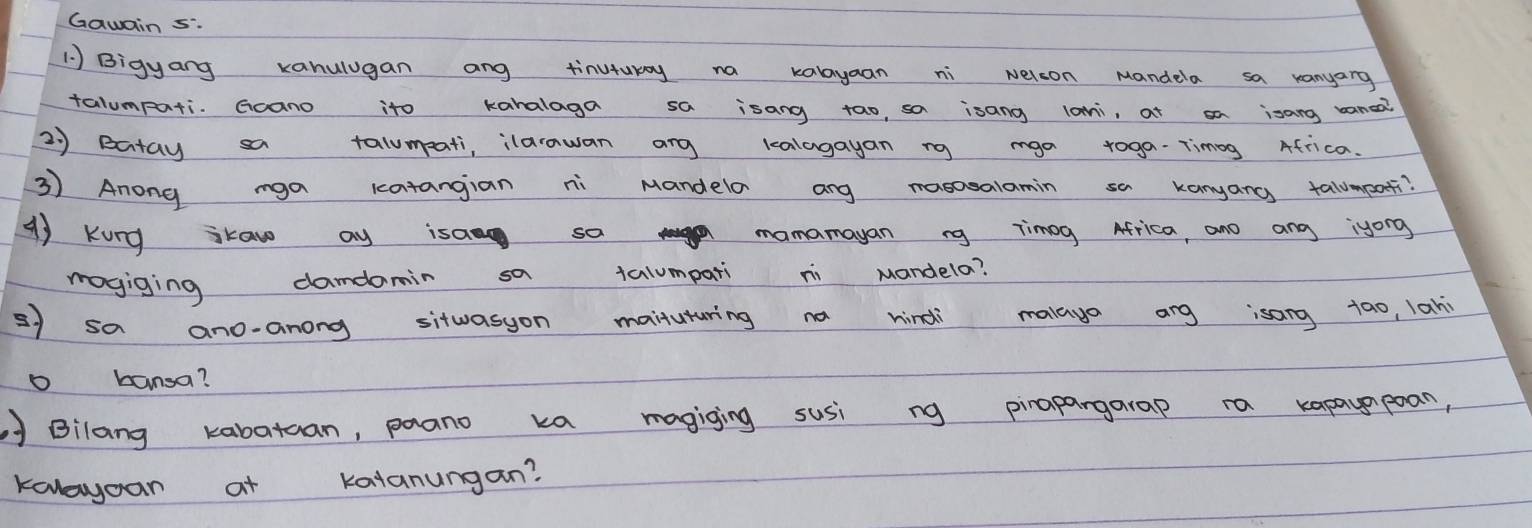 Gawain 5:
1.) Bigyang kahulugan ang tinutukoy na kalayaan ni Nelson Mandela sa kanyang
talumpati. Gaano ito kahalaga sa isang tao, sa isang lahi, at sa isang bansa?
2.) Batay sa talumpati, ilarawan ang kalagayan ng mga taga-Timog Africa.
3) Anong mga katangian ni Mandela ang masasalamin sa kanyang talumpati?
4) Kung ikaw ay isa sa mamamayan ng Timog Africa, ano ang iyong
magiging damdamin sa talumpati ni Mandela?
5.) sa ano-anong sitwasyon maituturing na hindi malaya ang isang tao, lahi
o bansa?
.) Bilang kabataan, paano ka magiging susi ng pinapangarap na kapayapaan,
kalayaan at katanungan?